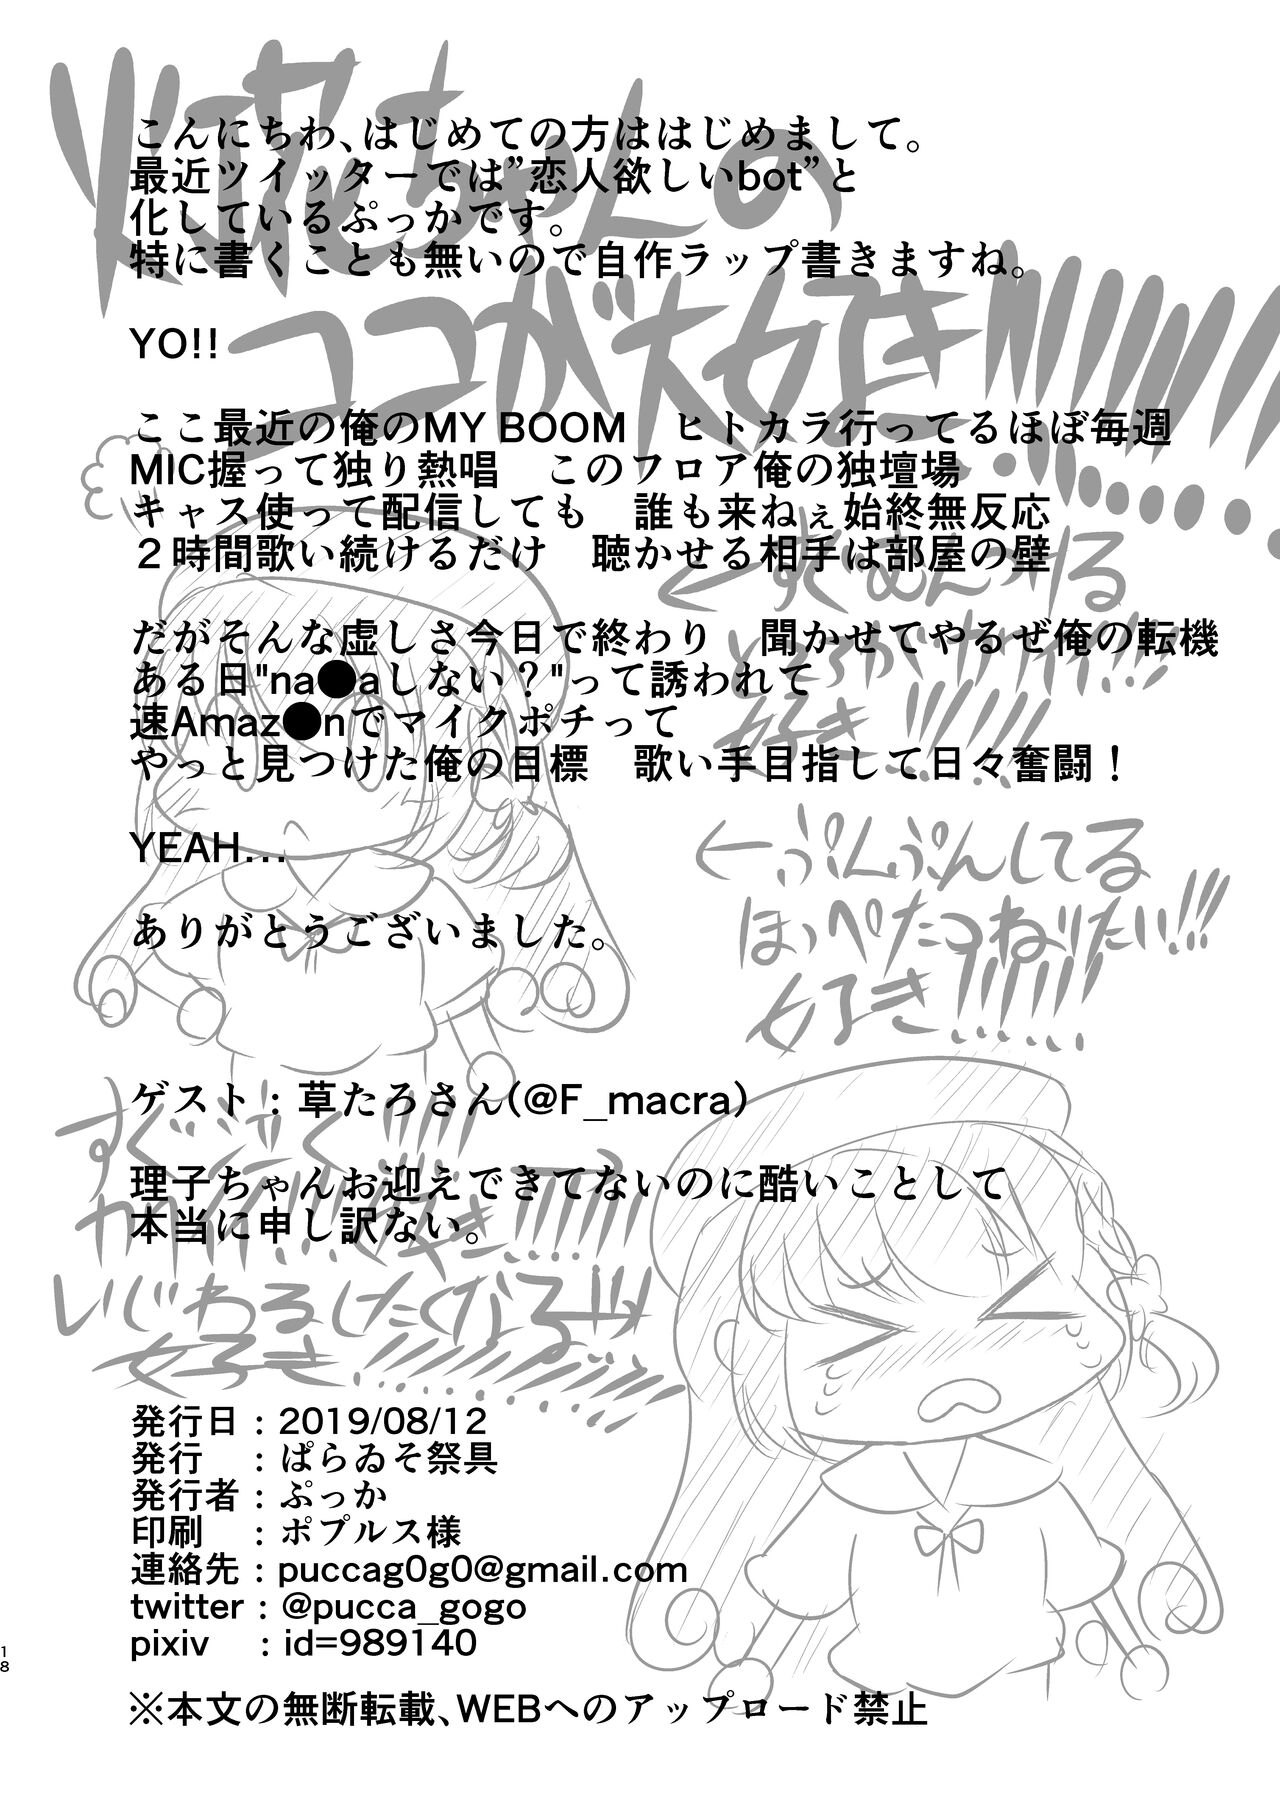 灯花ちゃんの
ココが大好き!!!!!!!!!!
こんにちわ、はじめての方ははじめまして。
最近ツイッターでは”恋人欲しいbot”と
化しているぷっかです。
特に書くことも無いので自作ラップ書きますね。
YO!!
ここ最近の俺のMY BOOM　ヒトカラ行ってるほぼ毎週
MIC握って独り熱唱　このフロア俺の独壇場
キャス使って配信しても　誰も来ねぇ始終無反応
２時間歌い続けるだけ　聴かせる相手は部屋の壁
だがそんな虚しさ今日で終わり　聞かせてやるぜ俺の転機
ある日"na●aしない？"って誘われて
速Amaz●nでマイクポチって
やっと見つけた俺の目標　歌い手目指して日々奮闘！
YEAH...
ありがとうございました。
←ずがむんってる
ところがカワイイ!!!
好き!!!!!!
←ぷんぷんしてる
ほっぺたつねりたい!!!
好き!!!!!!
ゲスト：草たろさん(@F_macra)
理子ちゃんお迎えできてないのに酷いことして
本当に申し訳ない。
いじわるしたくなる
好き
発行日：2019/08/12
発行　：ぱらゐそ祭具
発行者：ぷっか
印刷　：ポプルス様
連絡先：puccag0g0@gmail.com
twitter：@pucca_gogo
pixiv　：id=989140
※本文の無断転載、WEBへのアップロード禁止
18